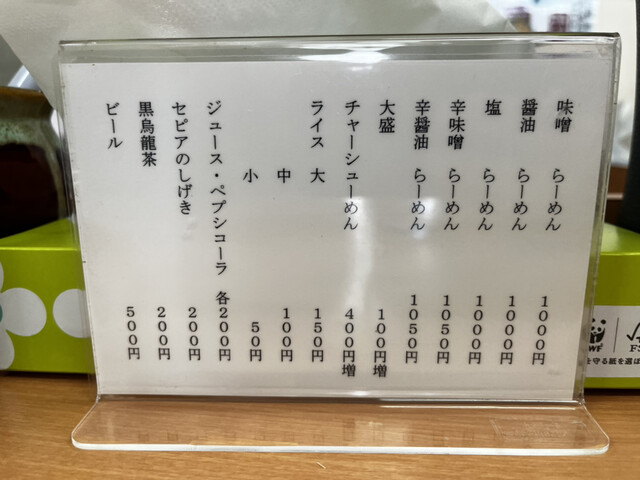 味噌 らーめん 1000円
醤油 らーめん 1000円
塩 らーめん 1000円
辛味噌 らーめん 1050円
辛醤油 らーめん 1050円
大盛 100円増
チャーシューめん 400円増
ライス 大 150円
中 100円
小 50円
ジュース・ペプシコーラ 各200円
セピアのしげき 200円
黒烏龍茶 200円
ビール 500円
WF
FS
を守る紙を選ば